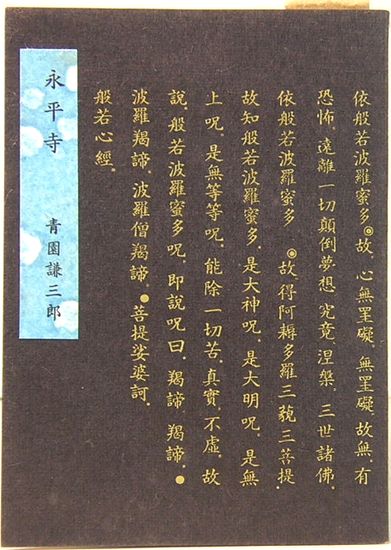 依般若波羅蜜多◉故. 心無罣礙. 無罣礙. 故無. 有
恐怖. 遠離一切顛倒夢想. 究竟. 涅槃. 三世諸佛.
依般若波羅蜜多 ◉故. 得阿耨多羅三藐三菩提.
故知般若波羅蜜多. 是大神呪. 是大明呪. 是無
上呪. 是無等等呪. 能除一切苦. 真實. 不虛. 故
說. 般若波羅蜜多呪. 即說呪曰. 羯諦 羯諦. ●
波羅羯諦. 波羅僧羯諦. ●菩提娑婆訶.
般若心經.
永平寺 青園謙三郎